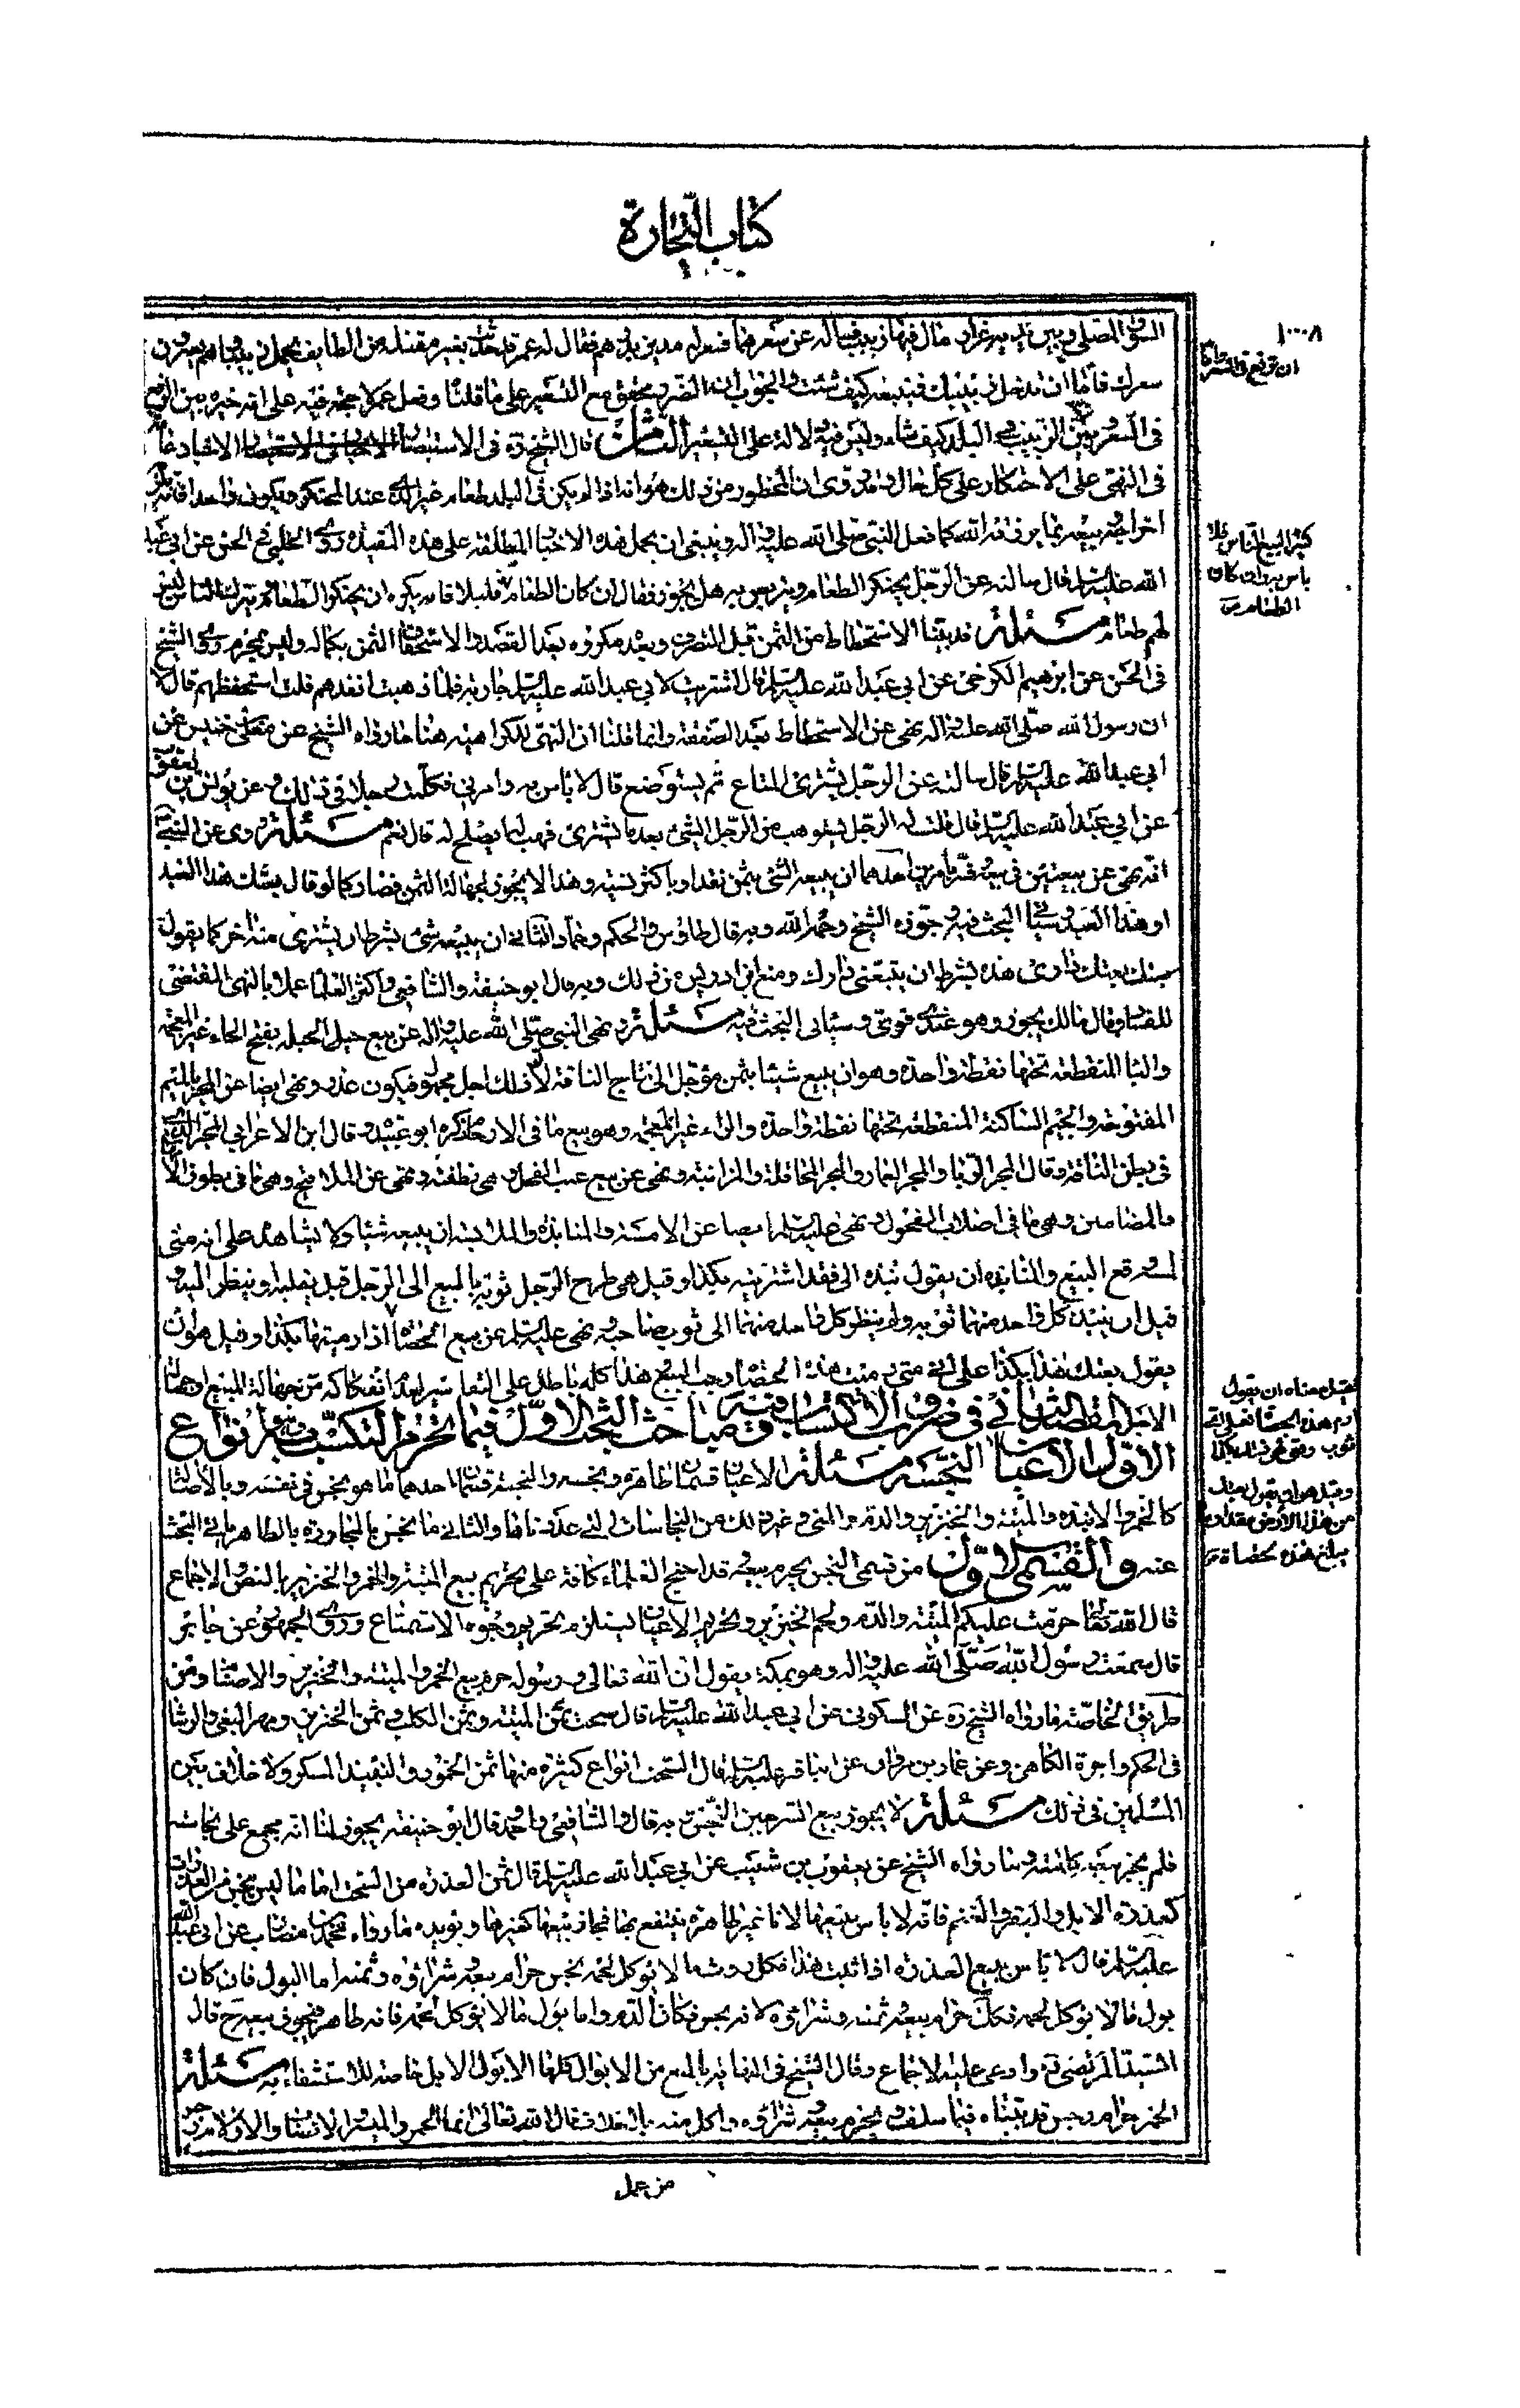 كتاب التجارة
١٠٠٨
السوق المصلى وبين يديه غرارتان فيهما زبيب فسأله عن سعرهما فسعر له مدين بدرهم فقال له عمر قد حدثت بعير مقبلة من الطايف تحمل زبيبا وهم يعتبرون
سعرك فأما ان ترفع في السعر واما
سعرك فاما ان تدخل زبيبك فتبيعه كيف شئت والجواب ان الضرر متحقق مع التسعير على ما قلنا وفعل عمر لا حجة فيه على انه خيره بين الرفع
في السعر وبين الزبيب في البلد كيف شاء وليس فيه دلالة على التسعير الثامن قال الشيخ ره في الاستبصار
في النهي على الاحتكار على كل حال وقد روى ان المحظور من ذلك هو انه اذا لم يكن في البلد طعام غير الذي عند المحتكر ويكون واحدا فانه يلزمه
اخراجه وبيعه بما يرزقه الله كما فعل النبي صلى الله عليه واله وينبغي ان يحمل هذه الاخبار المطلقة على هذه المقيدة روى الحلبي في الحسن عن ابي عبد
الله عليه السلم قال سالته عن الرجل يحتكر الطعام ويتربص به هل يجوز فقال ان كان الطعام قليلا فانه يكره ان يحتكر الطعام ويترك الناس ليس
كثيرا يسع الناس فلا
باس به وان كان
الطعام
لهم طعام مسئلة قد بينا الاستحطاط من الثمن قبل التصرف وبعده مكروه بعد العقد والاستحقاق الثمن بكماله وليس بمحرم روى الشيخ
في الحسن عن ابرهيم الكرخي عن ابي عبد الله عليه السلم قال اشتريت لابي عبد الله عليه السلم جارية فلما ذهبت انقدهم قلت استحطهم قال لا
ان رسول الله صلى الله عليه واله نهى عن الاستحطاط بعد الصفقة وانما قلنا ان النهي للكراهية هنا لما رواه الشيخ عن معلى بن خنيس عن
ابي عبد الله عليه السلم قال سالته عن الرجل يشترى المتاع ثم يستوضع قال لا باس به وامرني فكلمت له رجلا في ذلك وعن يونس بن يعقوب
عن ابي عبد الله عليه السلم قال قلت له الرجل يستوهب من الرجل الشئ بعد ما يشترى فيهب له ايصلح له قال نعم مسئلة روى عن النبي
انه نهى عن بيعتين في بيعة فسر بامرين احدهما ان يبيعه الشئ بثمن نقدا وباكثر نسية وهذا لا يجوز لجهالة الثمن فصار كما لو قال بعتك هذا العبد
او هذا العبد وسياتي البحث فيه وجوزه الشيخ رحمه الله وبه قال طاوس والحكم وحماد الثاني ان يبيعه شئ بشرط ان يشترى منه اخر كما يقول
بعتك داري هذه بشرط ان تبيعني دارك ومنع ابن ادريس من ذلك وبه قال ابو حنيفة والشافعي واكثر العلماء عملا بالنهي المقتضي
للفساد وقال مالك يجوز وهو عندي قوي وسياتي البحث فيه مسئلة نهى النبي صلى الله عليه واله عن بيع حبل الحبلة بفتح الحاء غير المعجمة
والباء المنقطة تحتها نقطة واحدة وهو ان يبيع شيئا بثمن مؤجل الى نتاج الناقة لان ذلك اجل مجهول فيكون غررا ونهى ايضا عن المجر بالميم
المفتوحة والجيم الساكنة المنقطة تحتها نقطة واحدة والراء غير المعجمة وهو بيع ما في الارحام ذكره ابو عبيد وقال ابن الاعرابي المجر الذي
في بطن الناقة وقال المجر الربا والمجر القمار والمجر المحاقلة والمزابنة ونهى عن بيع عسب الفحل وهي نطفته ونهى عن الملاقيح وهي ما في بطون الامهات
والمضامين وهي ما في اصلاب الفحول ونهى عليه السلم ايضا عن الملامسة والمنابذة والملامسة ان يبيعه شيئا ولا يشاهده على انه متى
لمسه وقع البيع والمنابذة ان يقول ان نبذه الى فقد اشتريته بكذا وقيل هي طرح الرجل ثوبه بالبيع الى الرجل قبل يقلبه او ينظر اليه و
قيل ان ينبذ كل واحد منهما ثوبه ولم ينظر كل واحد منهما الى ثوب صاحبه ونهى عليه السلم عن بيع الحصاة اذا رميتها بكذا وقيل هو ان
يقول بعتك هذا بكذا على انى متى رميت هذه الحصاة وجب البيع هذا كله باطل على التفاسير لعدم انفكاكه من جهالة المبيع او جهالة
فقيل معناه ان يقول
ارم هذه الحصاة فعلى اي
ثوب وقعت فهو لك بكذا
وقيل هو ان يقول بعتك
من هذا الارض مقدار ما
يبلغ هذه الحصاة
الاجل المقصد الثاني في ضروب الاكتساب وفيه مباحث البحث الاول فيما يحرم التكسب به وهو انواع
الاول الاعيان النجسة مسئلة الاعيان قسمان طاهرة ونجسة والنجسة قسمان احدهما ما هو نجس في نفسه وبالاصالة
كالخمر والانبذة والميتة والخنزير والدم والمني وغير ذلك من النجاسات التي عددناها والثاني ما نجس بالمجاورة بالطاهر ياتي البحث
عنه والقسم الاول من قسمي النجس يحرم بيعه قد اجمع العلماء كافة على تحريم بيع الميتة والخمر والخنزير بالنص والاجماع
قال الله تعالى حرمت عليكم الميتة والدم ولحم الخنزير وتحريم الاعيان يستلزم تحريم وجوه الاستمتاع وروى الجمهور عن جابر
قال سمعت رسول الله صلى الله عليه واله وهو بمكة يقول ان الله تعالى ورسوله حرم بيع الخمر والميتة والخنزير والاصنام ومن
طريق الخاصة ما رواه الشيخ ره عن السكوني عن ابي عبد الله عليه السلم قال سحت ثمن الميتة وثمن الكلب وثمن الخنزير ومهر البغى والرشا
في الحكم واجرة الكاهن وعن عمار بن مروان عن الباقر عليه السلم قال السحت انواع كثيرة منها ثمن الخمور والنبيذ المسكر ولا خلاف بين
المسلمين في ذلك مسئلة لا يجوز بيع السرجين النجس وبه قال الشافعي واحمد وقال ابو حنيفة يجوز لنا انه مجمع على نجاسته
فلم يجز بيعه كالميتة وما رواه الشيخ عن يعقوب بن شعيب عن ابي عبد الله عليه السلم قال ثمن العذرة من السحت اما ما ليس بنجس من العذرات
كعذرة الابل والبقر والغنم فانه لا باس ببيعها لانها عين طاهرة ينتفع بها فجاز بيعها كغيرها ويؤيده ما رواه محمد بن مضارب عن ابي عبد الله
عليه السلم قال لا باس ببيع العذرة اذا ثبت هذا فكل روث ما لا يؤكل لحمه نجس حرام بيعه وشراؤه وثمنه اما البول فان كان
بول ما لا يؤكل لحمه فكك حرام بيعه وثمنه وشراؤه لانه نجس فكان كالدم واما بول ما يؤكل لحمه فانه طاهر فيجوز بيعه ح قال
السيد المرتضى ره وادعى عليه الاجماع وقال الشيخ في النهاية بالمنع من الابوال كلها الا بول الابل خاصة للاستشفاء به مسئلة
الخمر حرام ونجس قد بيناه فيما سلف ويحرم بيعه وشراؤه واكل ثمنه بلا خلاف قال الله تعالى انما الخمر والميسر والانصاب والازلام رجس
من عمل